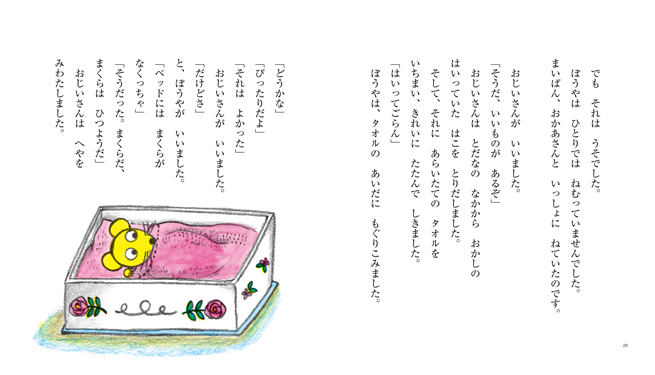 でも　それは　うそでした。
ぼうやは　ひとりでは　ねむっていませんでした。
まいばん、おかあさんと　いっしょに　ねていたのです。
おじいさんが　いいました。
「そうだ、いいものが　あるぞ」
おじいさんは　とだなの　なかから　おかしの
はいっていた　はこを　とりだしました。
そして、それに　あらいたての　タオルを
いちまい、きれいに　たたんで　しきました。
「はいってごらん」
ぼうやは、タオルの　あいだに　もぐりこみました。
「どうかな」
「ぴったりだよ」
「それは　よかった」
おじいさんが　いいました。
「だけどさ」
と、ぼうやが　いいました。
「ベッドには　まくらが
なくっちゃ」
「そうだった。まくらだ、
まくらは　ひつようだ」
おじいさんは　へやを
みわたしました。